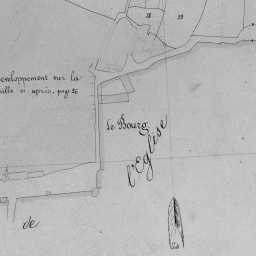 18
19
eveloppement sur la
uille ci après, page 26
Le Bourg
l'Eglise
de